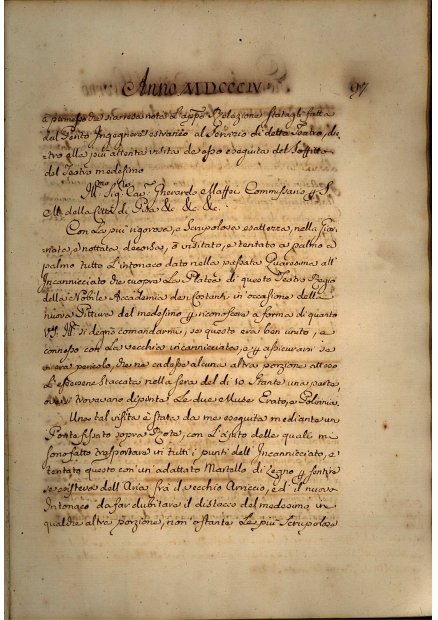 Anno MDCCCIV 97
a piè messo de narresa nota L'app.ª Relazione fatagli fatta
dal Perito Ingegnere estraneo al Servizio di detto Teatro, die
tro alla più attenta visita da esso eseguita del Soffitto
del Teatro medesimo
Sig.r Cav.r Gherardo Maffei Commissario p. S.
M. della Città di Pisa &c &c &c.
Con la più rigorosa, e Scrupolosa esattezza, nella Gior
nata, e nottata decorsa, ò visitato, e tentato a palmo a
palmo tutto L'intonaco dato nella passata Quaresima all'
Incannicciato che cuopre La Platea di questo Teatro Regio
della Nobile Accademia dei Costanti in occasione della
nuova Pittura del medesimo p. riconoscere a forma di quanto
V.S. Ill. si degnò comandarmi, se questo era ben unito, e
connesso con La vecchia incannicciata, e p. assicurarsi se
vi era pericolo, che ne cadesse alcuna altra porzione atteso
L'essersene staccata nella sera del dì 10 Stante una parte,
ove si trovavano dipinte Le due Muse Erato, e Polinnia.
Una tal visita è stata da me eseguita mediante un
Ponte fissato sopra Ruote, con L'ajuto delle quali mi
sono fatto trasportare in tutti i punti dell'Incannicciato, e
tentato questo con un adattato Martello di Legno p. sentire
se esisteva dell'Aria frà il vecchio Arriccio, ed il nuovo
Intonaco da far dubitare il distacco del medesimo in
qualche altra porzione, non ostante Le più Scrupolose